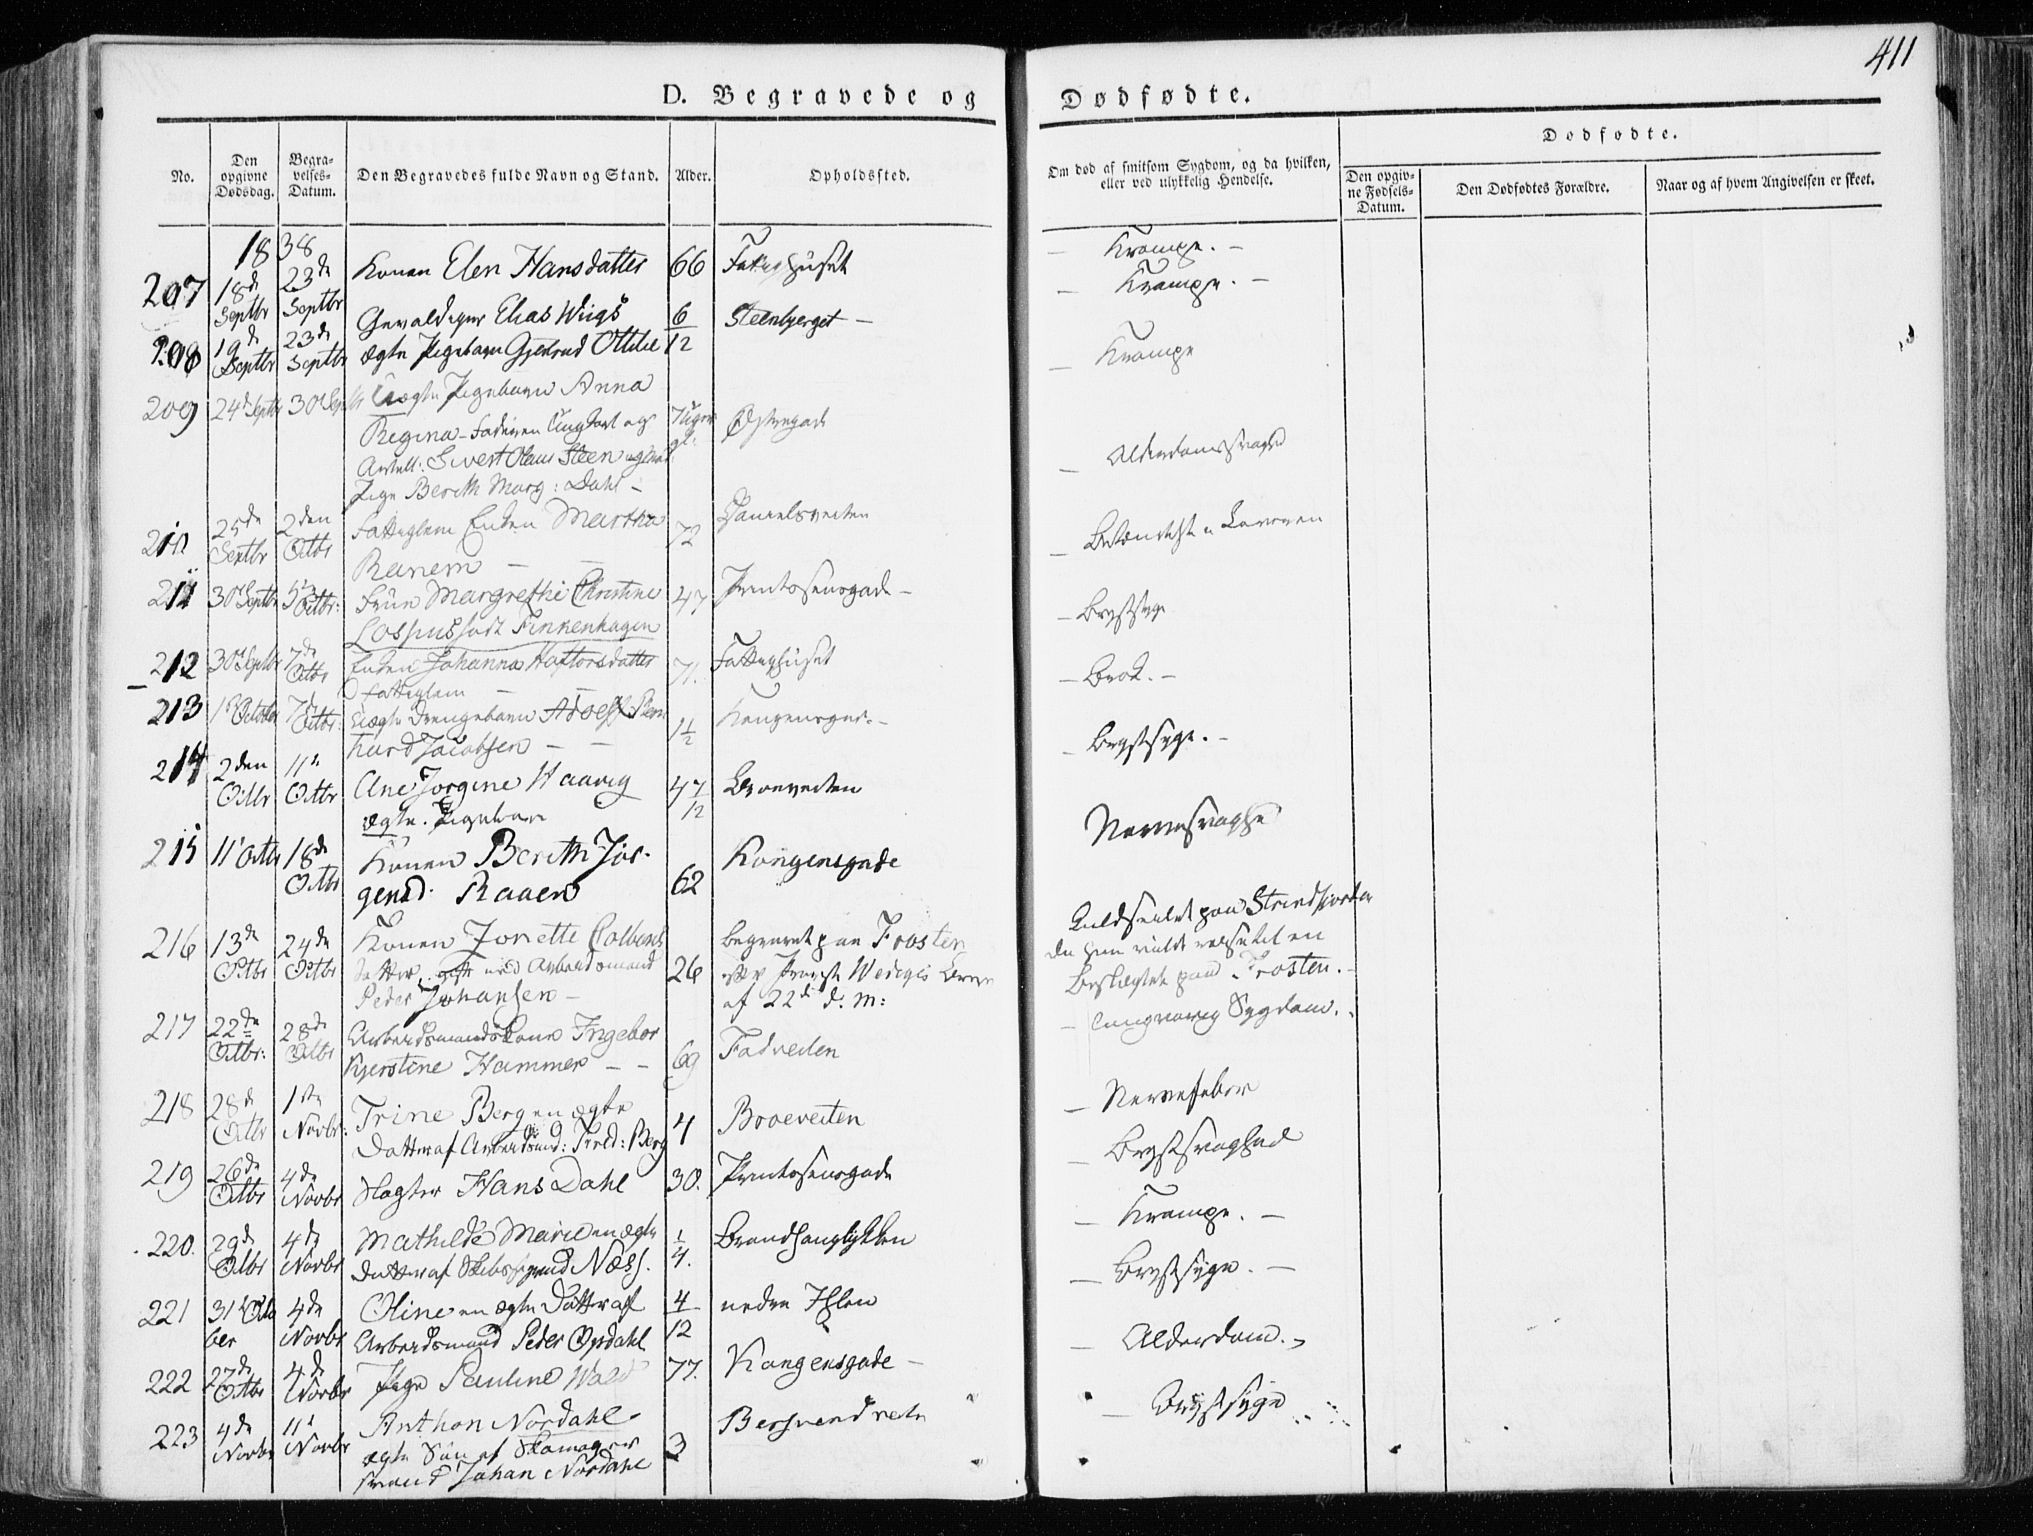 411
D. Begravede og Dødfødte.
No.
Den opgivne Dødsdag.
Begravelses-Datum.
Den Begravedes fulde Navn og Stand.
Alder.
Opholdssted.
Om død af smitsom Sygdom, og da hvilken,
eller ved ulykkelig Hendelse.
Dødfødte.
Den opgivne Fødsels-Datum.
Den Dødfødtes Forældre.
Naar og af hvem Angivelsen er skeet.
1838
207 18de Septbr 23de Septbr Konen Elen Hansdatter 66 Fattighuset — Krampe. —
208 19de Septbr 23de Septbr Gevaldiger Elias Wiigs 6/12 Steenbjerget — — Krampe. —
ægte Pigebarn Gjertrud Ottilie
209 24de Septbr 30 Septbr Uægte Pigebarn Anna 7 Uger gl. Østregade — Krampe
Regina – Faderen Ungkarl og
Artill: Sivert Olaus Steen og
Pige Berith Marg: Dahl –
210 25de Septbr 2den Octbr Fattiglem Enken Martha 72 Danielsveiten — Alderdomssvaghed
Ranem — —
211 30 Septbr 5te Octbr: Fruen Margrethe Christine 47 Printzensgade —
Lossius født Finkenhagen
212 30 Septbr 7de Octbr Enken Johanna Haftorsdatter 71. Fattighuset — Brystsyge
Fattiglem — —
213 1ste October 7de Octbr: Uægte Drengebarn Adolf Bern 1 1/2 Kongensgad. — — Brok. —
hard Jacobsen — —
214 2den Octbr 11te Octbr Ane Jorgine Haavig 4 7/12 Broeveiten — Brystsyge. —
ægte. Pigebarn
215 11te Octbr 18de Octbr Konen Berith Jør- 62 Kongensgade Nervesvaghed
gensd. Raaen
216 13de Octbr 24de Octbr Konen Jonette Colbens 26 begravet paa Frosten Kuldseilet paa Strindfjorden
datter gift med Arbeidsmand Provst Wedeges da hun vilde
Peder Johansen — af 22de d. M: Beslægtede paa Frosten. —
217 22de Octbr: 28de Octbr Arbeidsmandskone Ingebor 69 Fadveiten — langvarig Sygdom.
Kjerstine Hammer — —
218 28de Octbr 1ste Novbr: Trine Berg en ægte 4 Broeveiten — Nervefeber
Datter af Arbeidsmd: Fred: Berg
219 26de Octbr 4de Novbr Slagter Hans Dahl 30. Printzensgade — Brystsvaghed
220. 29de Octbr 4de Novbr Mathilde Marie en ægte 1/4. — Krampe. —
Datter af Skibstømmermd Næss.
221 31te October 4de Novbr Oline en ægte Datter af 4/12 nedre Ihlen — Brystsyge. —
Arbeidsmand Peder Opdahl
222 27de Octbr 4de Novbr Pige Pauline Wald 77. Kongensgade — — Alderdom.
223 4de Novbr 11te Novbr Anthon Nordahl 3 Bersvendveiten — Brystsyge
ægte Søn af Skomager
svend Johan Nordahl